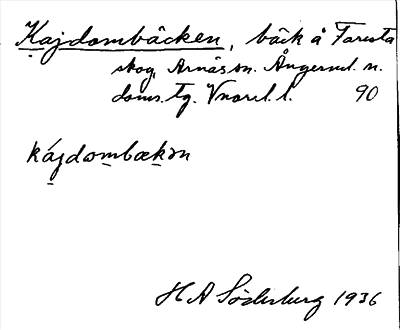 Kajdombäcken, bäck å Faresta
skog, Arnäs sn. Ångerml. n.
doms. Tg. Vnorrl. l. 90
kájdombækən
H A Söderburg 1936